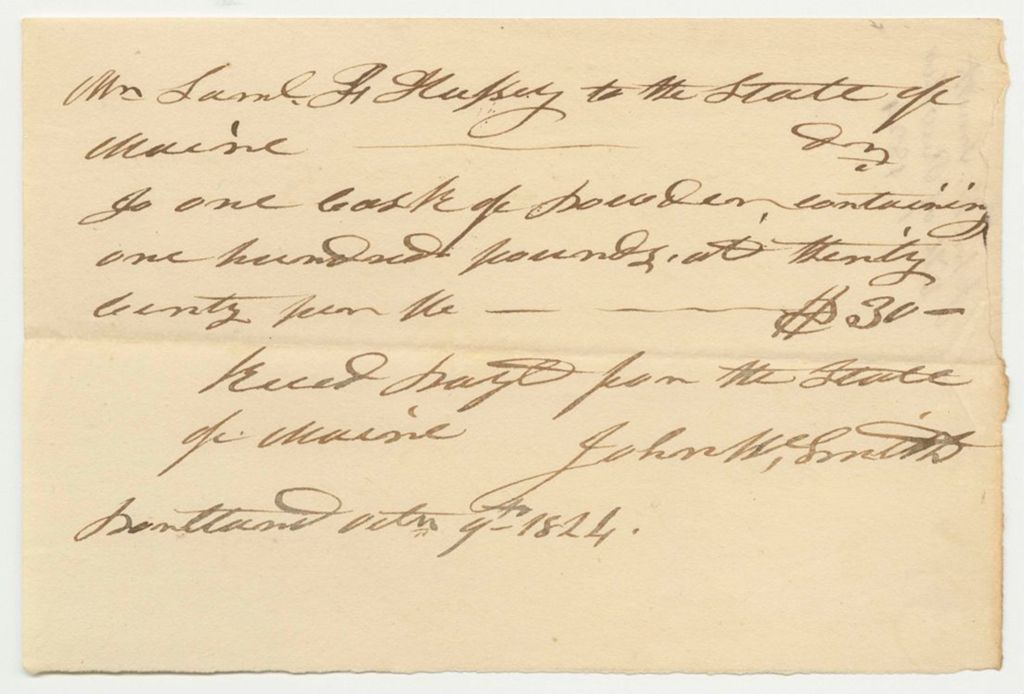 Mr Saml. F Hussey to the State of
Maine Dr
To one Cask of powder, containing
one hundred pounds, at thirty
Cents per lb — — — $30-
Reced payt for the State
of Maine John K, Smith
Portland Octr 9th 1824.